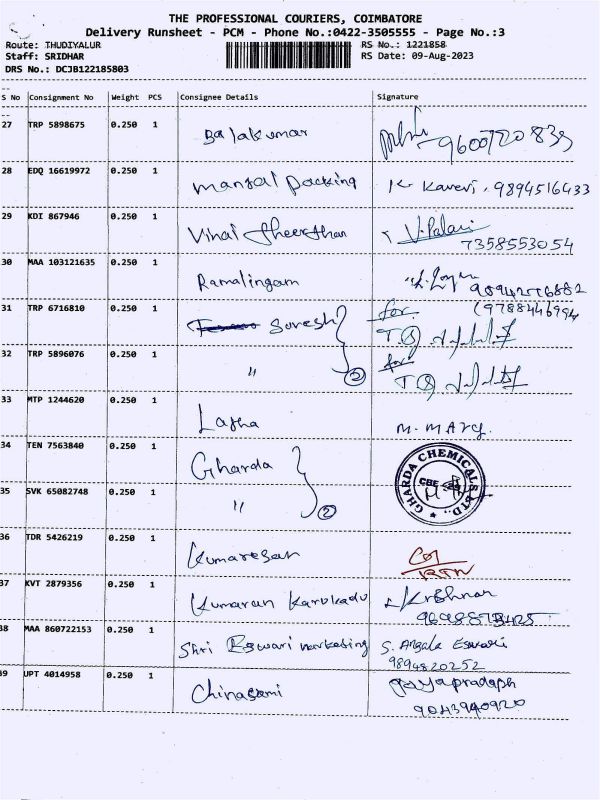 THE PROFESSIONAL COURIERS, COIMBATORE
Delivery Runsheet - PCM - Phone No.:0422-3505555 - Page No.:3
Route: THUDIYALUR RS No.: 1221858
Staff: SRIDHAR RS Date: 09-Aug-2023
DRS No.: DCJB122185803
S No Consignment No Weight PCS Consignee Details Signature
27 TRP 5898675 0.250 1 Balakumar
28 EDQ 16619972 0.250 1 Mangal packing K. Kaveri. 9894516433
29 KDI 867946 0.250 1 Vimal V.Palani
7358553054
30 MAA 103121635 0.250 1 Ramalingam
31 TRP 6716810 0.250 1 Suresh for
32 TRP 5896076 0.250 1 " 2 for
33 MTP 1244620 0.250 1 Latha M. MARY.
34 TEN 7563840 0.250 1 Gharda
GHARDA CHEMICALS LTD. CBE
35 SVK 65082748 0.250 1 " 2
36 TDR 5426219 0.250 1 Kumaresan
37 KVT 2879356 0.250 1 Kumaran Krishnan
38 MAA 860722153 0.250 1 Shri Eswari marketing S. Angala Eswari
9894820252
39 UPT 4014958 0.250 1 Chinasami Jayapradaph
9043940920